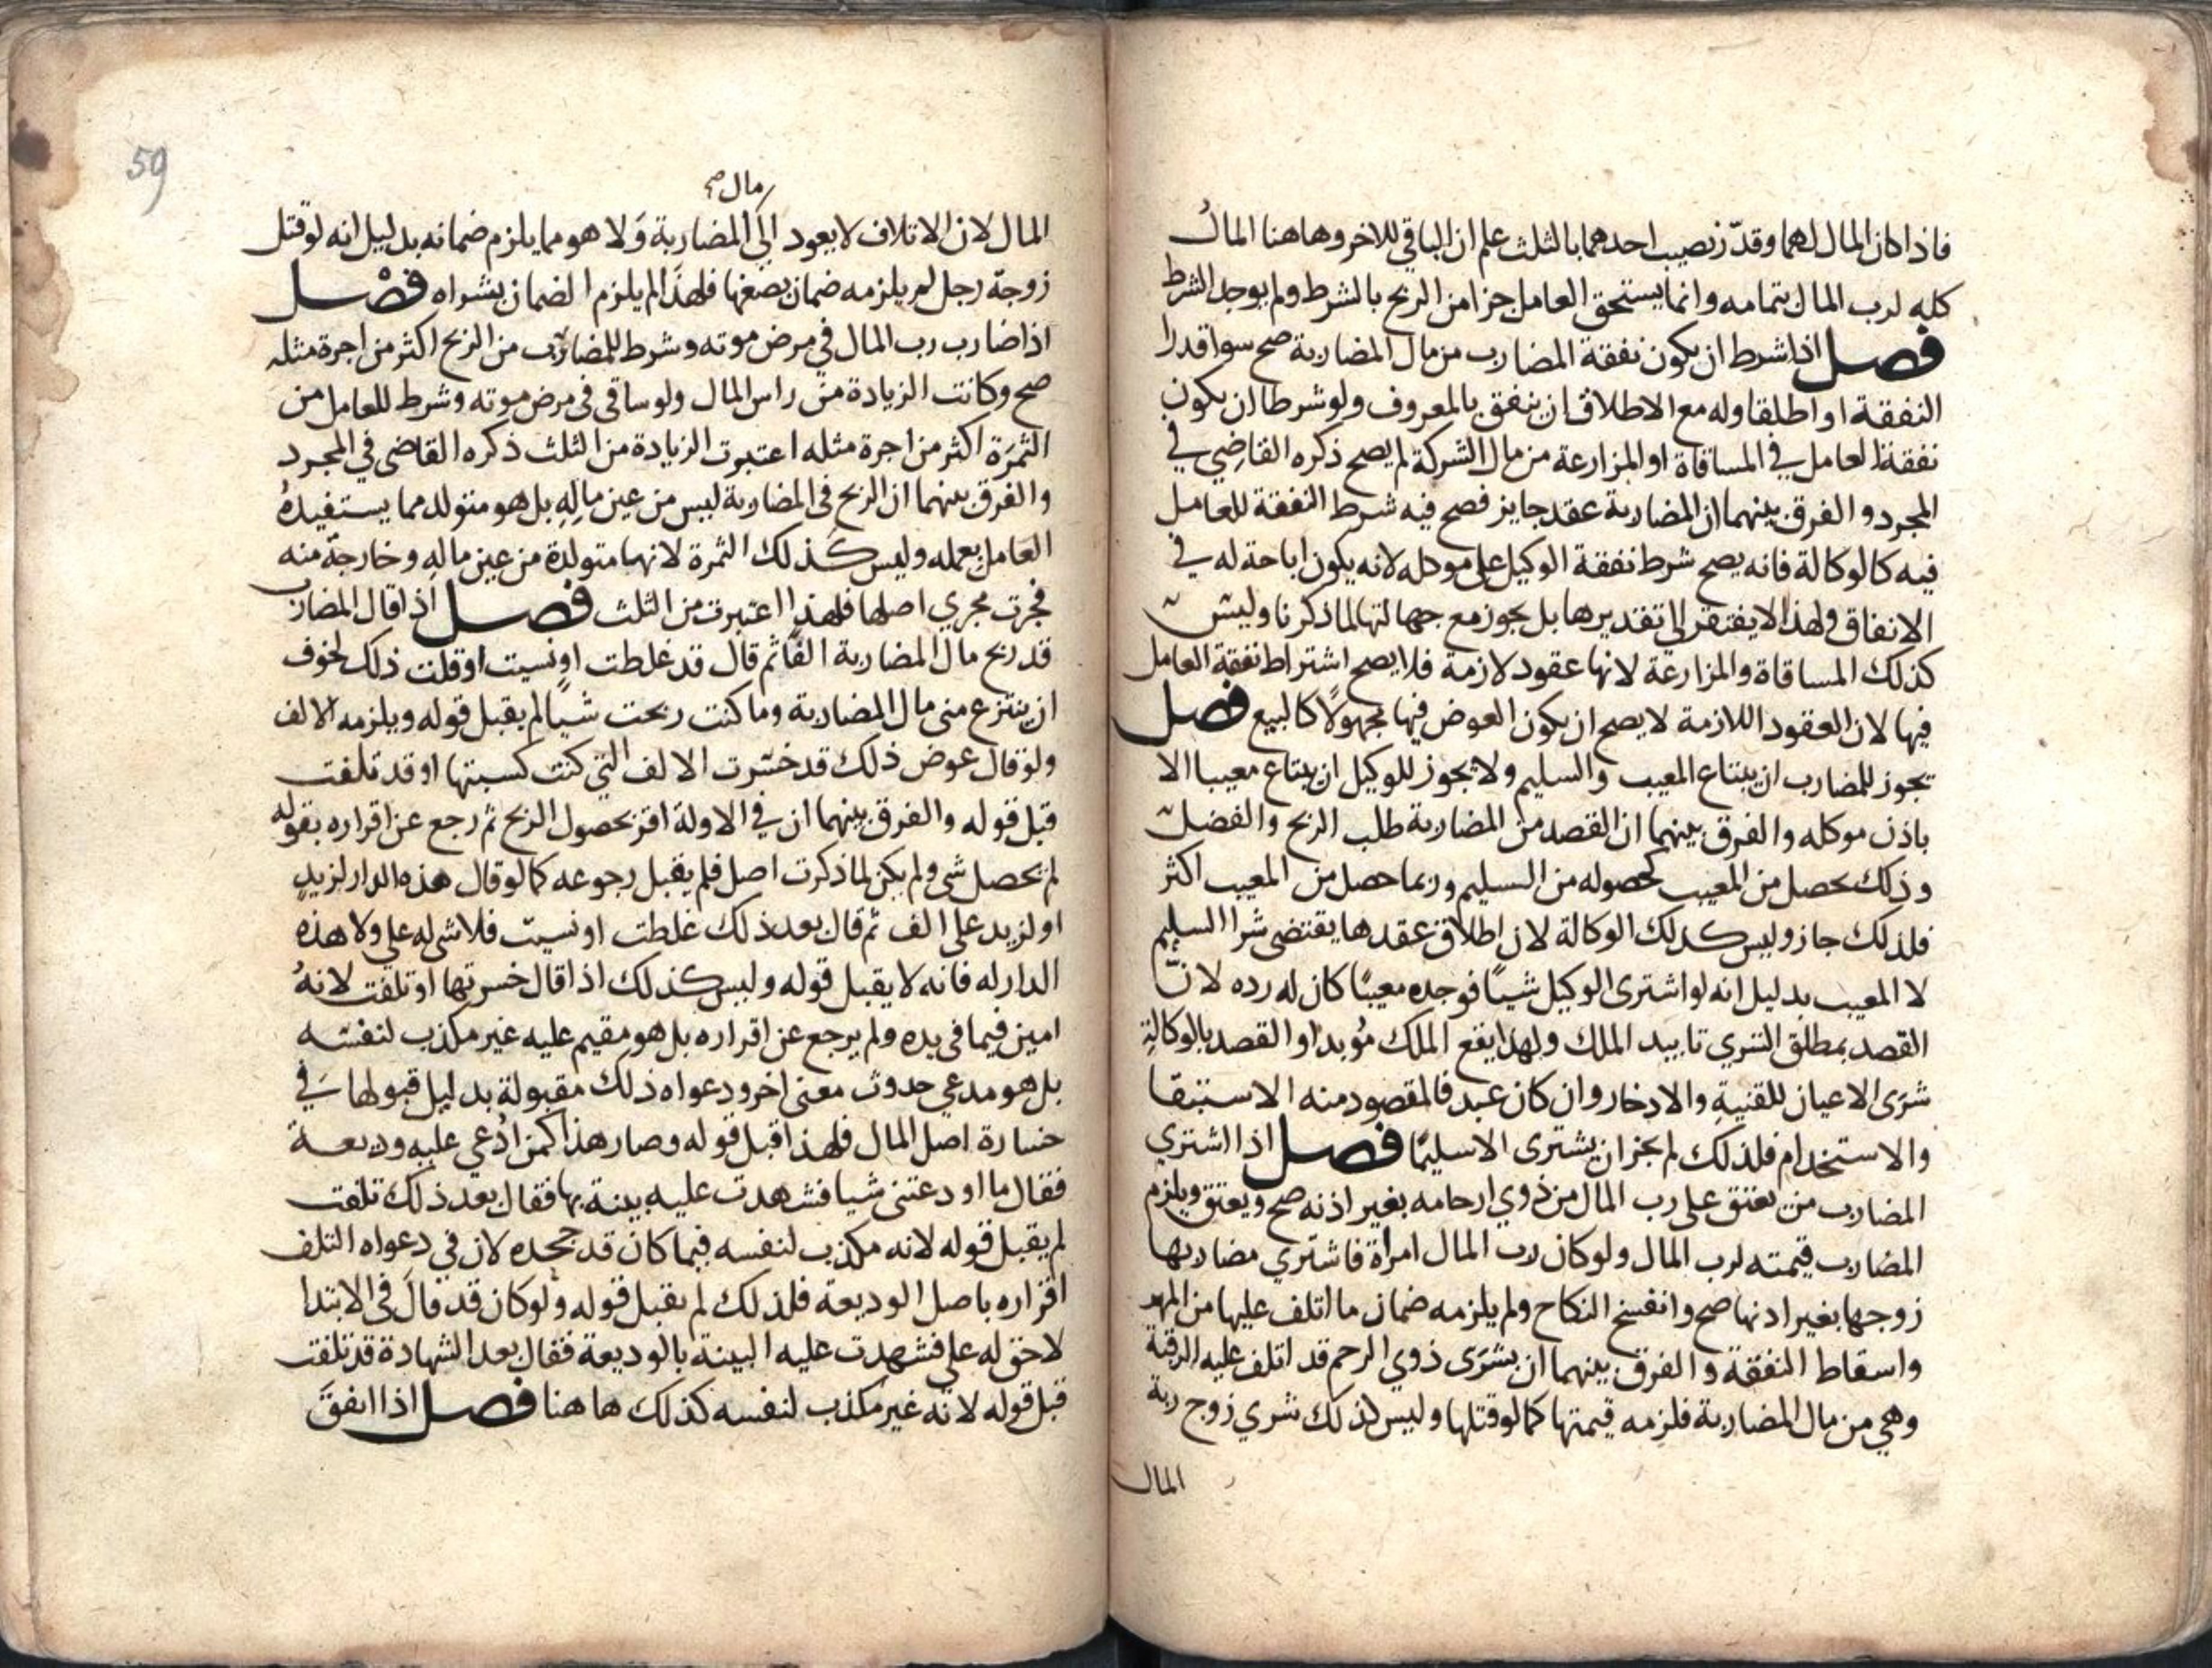 فاذا كان المال لهما وقدّر نصيب احدهما بالثلث علم ان الباقي للاخر وهاهنا المالُ
كله لرب المال بتمامه وانما يستحق العامل جزا من الربح بالشرط ولم يوجد الشرط
فصل اذا شرط ان يكون نفقة المضارب من مال المضاربة صح سوا قدرا
النفقة او اطلقا وله مع الاطلاق ان ينفق بالمعروف ولو شرطا ان يكون
نفقة العامل في المساقاة او المزارعة من مال الشركة لم يصح ذكره القاضي في
المجرد والفرق بينهما ان المضاربة عقد جايز فصح فيه شرط النفقة للعامل
فيه كالوكالة فانه يصح شرط نفقة الوكيل على موكله لانه يكون اباحة له في
الانفاق ولهذا لا يفتقر الى تقديرها بل يجوز مع جهالتها لما ذكرنا وليس
كذلك المساقاة والمزارعة لانها عقود لازمة فلا يصح اشتراط نفقة العامل
فيها لان العقود اللازمة لا يصح ان يكون العوض فيها مجهولًا كالبيع فصل
يجوز للمضارب ان يبتاع المعيب والسليم ولا يجوز للوكيل ان يبتاع معيبا الا
باذن موكله والفرق بينهما ان القصد من المضاربة طلب الربح والفضل
وذلك يحصل من المعيب كحصوله من السليم وربما حصل من المعيب اكثر
فلذلك جاز وليس كذلك الوكالة لان اطلاق عقدها يقتضى شرا السليم
لا المعيب بدليل انه لو اشترى الوكيل شيًا فوجده معيبًا كان له رده لانّ
القصد بمطلق الشري تابيد الملك ولهذا يقع الملك مُوبدا والقصد بالوكالةِ
شرَى الاعيان للقنيةِ والادخار وان كان عبد فالمقصود منه الاستبقا
والاستخدام فلذلك لم يجز ان يشترى الا سليمًا فصل اذا اشتري
المضارب من يعتق على رب المال من ذوي ارحامه بغير اذنه صح ويعتق ويلزم
المضارب قيمته لرب المال ولو كان رب المال امراة فاشتري مضاربها
زوجها بغير اذنها صح وانفسخ النكاح ولم يلزمه ضمان ما اتلف عليها من المهر
واسقاط النفقة والفرق بينهما ان بشرَى ذوي الرحم قد اتلف عليه الرقبة
وهي من مال المضاربة فلزمه قيمتها كما لو قتلها وليس كذلك شري زوج ربة
المال
59
مال صح
المال لان الاتلاف لا يعود الى المضاربة وَلا هو مما يلزم ضمانه بدليل انه لو قتل
زوجة رجل لم يلزمه ضمان بضعها فلهذا لم يلزم الضمان بشراه فصْل
اذا ضارب رب المال في مرض موته وشرط للمضارب من الربح اكثر من اجرة مثله
صح وكانت الزيادة من راس المال ولو ساقى فى مرض موته وشرط للعامل من
الثمرَة اكثر من اجرة مثله اعتبرت الزيادة من الثلث ذكره القاضى في المجرد
والفرق بينهما ان الربح فى المضاربة ليس من عين مالِهِ بل هو متولد مما يستفيدهُ
العامل بعمله وليس كذلك الثمرة لانها متولدة من عين مالهِ وخارجة منه
فجرت مجري اصلها فلهذا اعتبرت من الثلث فصل اذا قال المضارب
قد ربح مال المضاربة الفًا ثم قال قد غلطت او نسيت او قلت ذلك لخوف
ان ينتزع منى مال المضاربة وما كنت ربحت شيًا لم يقبل قوله ويلزمه الالف
ولو قال عوض ذلك قد خسّرت الالف التي كنت كسبتها او قد تلفت
قبل قوله والفرق بينهما ان في الاولة اقر بحصول الربح ثم رجع عن اقراره بقوله
لم يحصل شى ولم يكن لما ذكرت اصل فلم يقبل رجوعه كما لو قال هذه الدار لزيدٍ
او لزيد على الف ثم قال بعد ذلك غلطت او نسيت فلا شى له علي ولا هذه
الدار له فانه لا يقبل قوله وليس كذلك اذا قال خسرتها او تلفت لانهُ
امين فيما فى يده ولم يرجع عن اقراره بل هو مقيم عليه غير مكذب لنفسه
بل هو مدعي حدوث معنى اخر ودعواه ذلك مقبولة بدليل قبولها في
خسارة اصل المال فلهذا قبل قوله وصار هذا كمن ادُعي عليه وديعة
فقال ما اودعتنى شيا فشهدت عليه بينة بها فقال بعد ذلك تلفت
لم يقبل قوله لانه مكذب لنفسه فيما كان قد جحده لان في دعواه التلف
اقراره باصل الوديعة فلذلك لم يقبل قوله وَلو كان قد قالَ فى الابتدا
لا حق له علي فشهدت عليه البينة بالوديعة فقال بعد الشهادة قد تلفت
قبل قوله لانه غير مكذب لنفسه كذلك هاهنا فصل اذا انفقَ